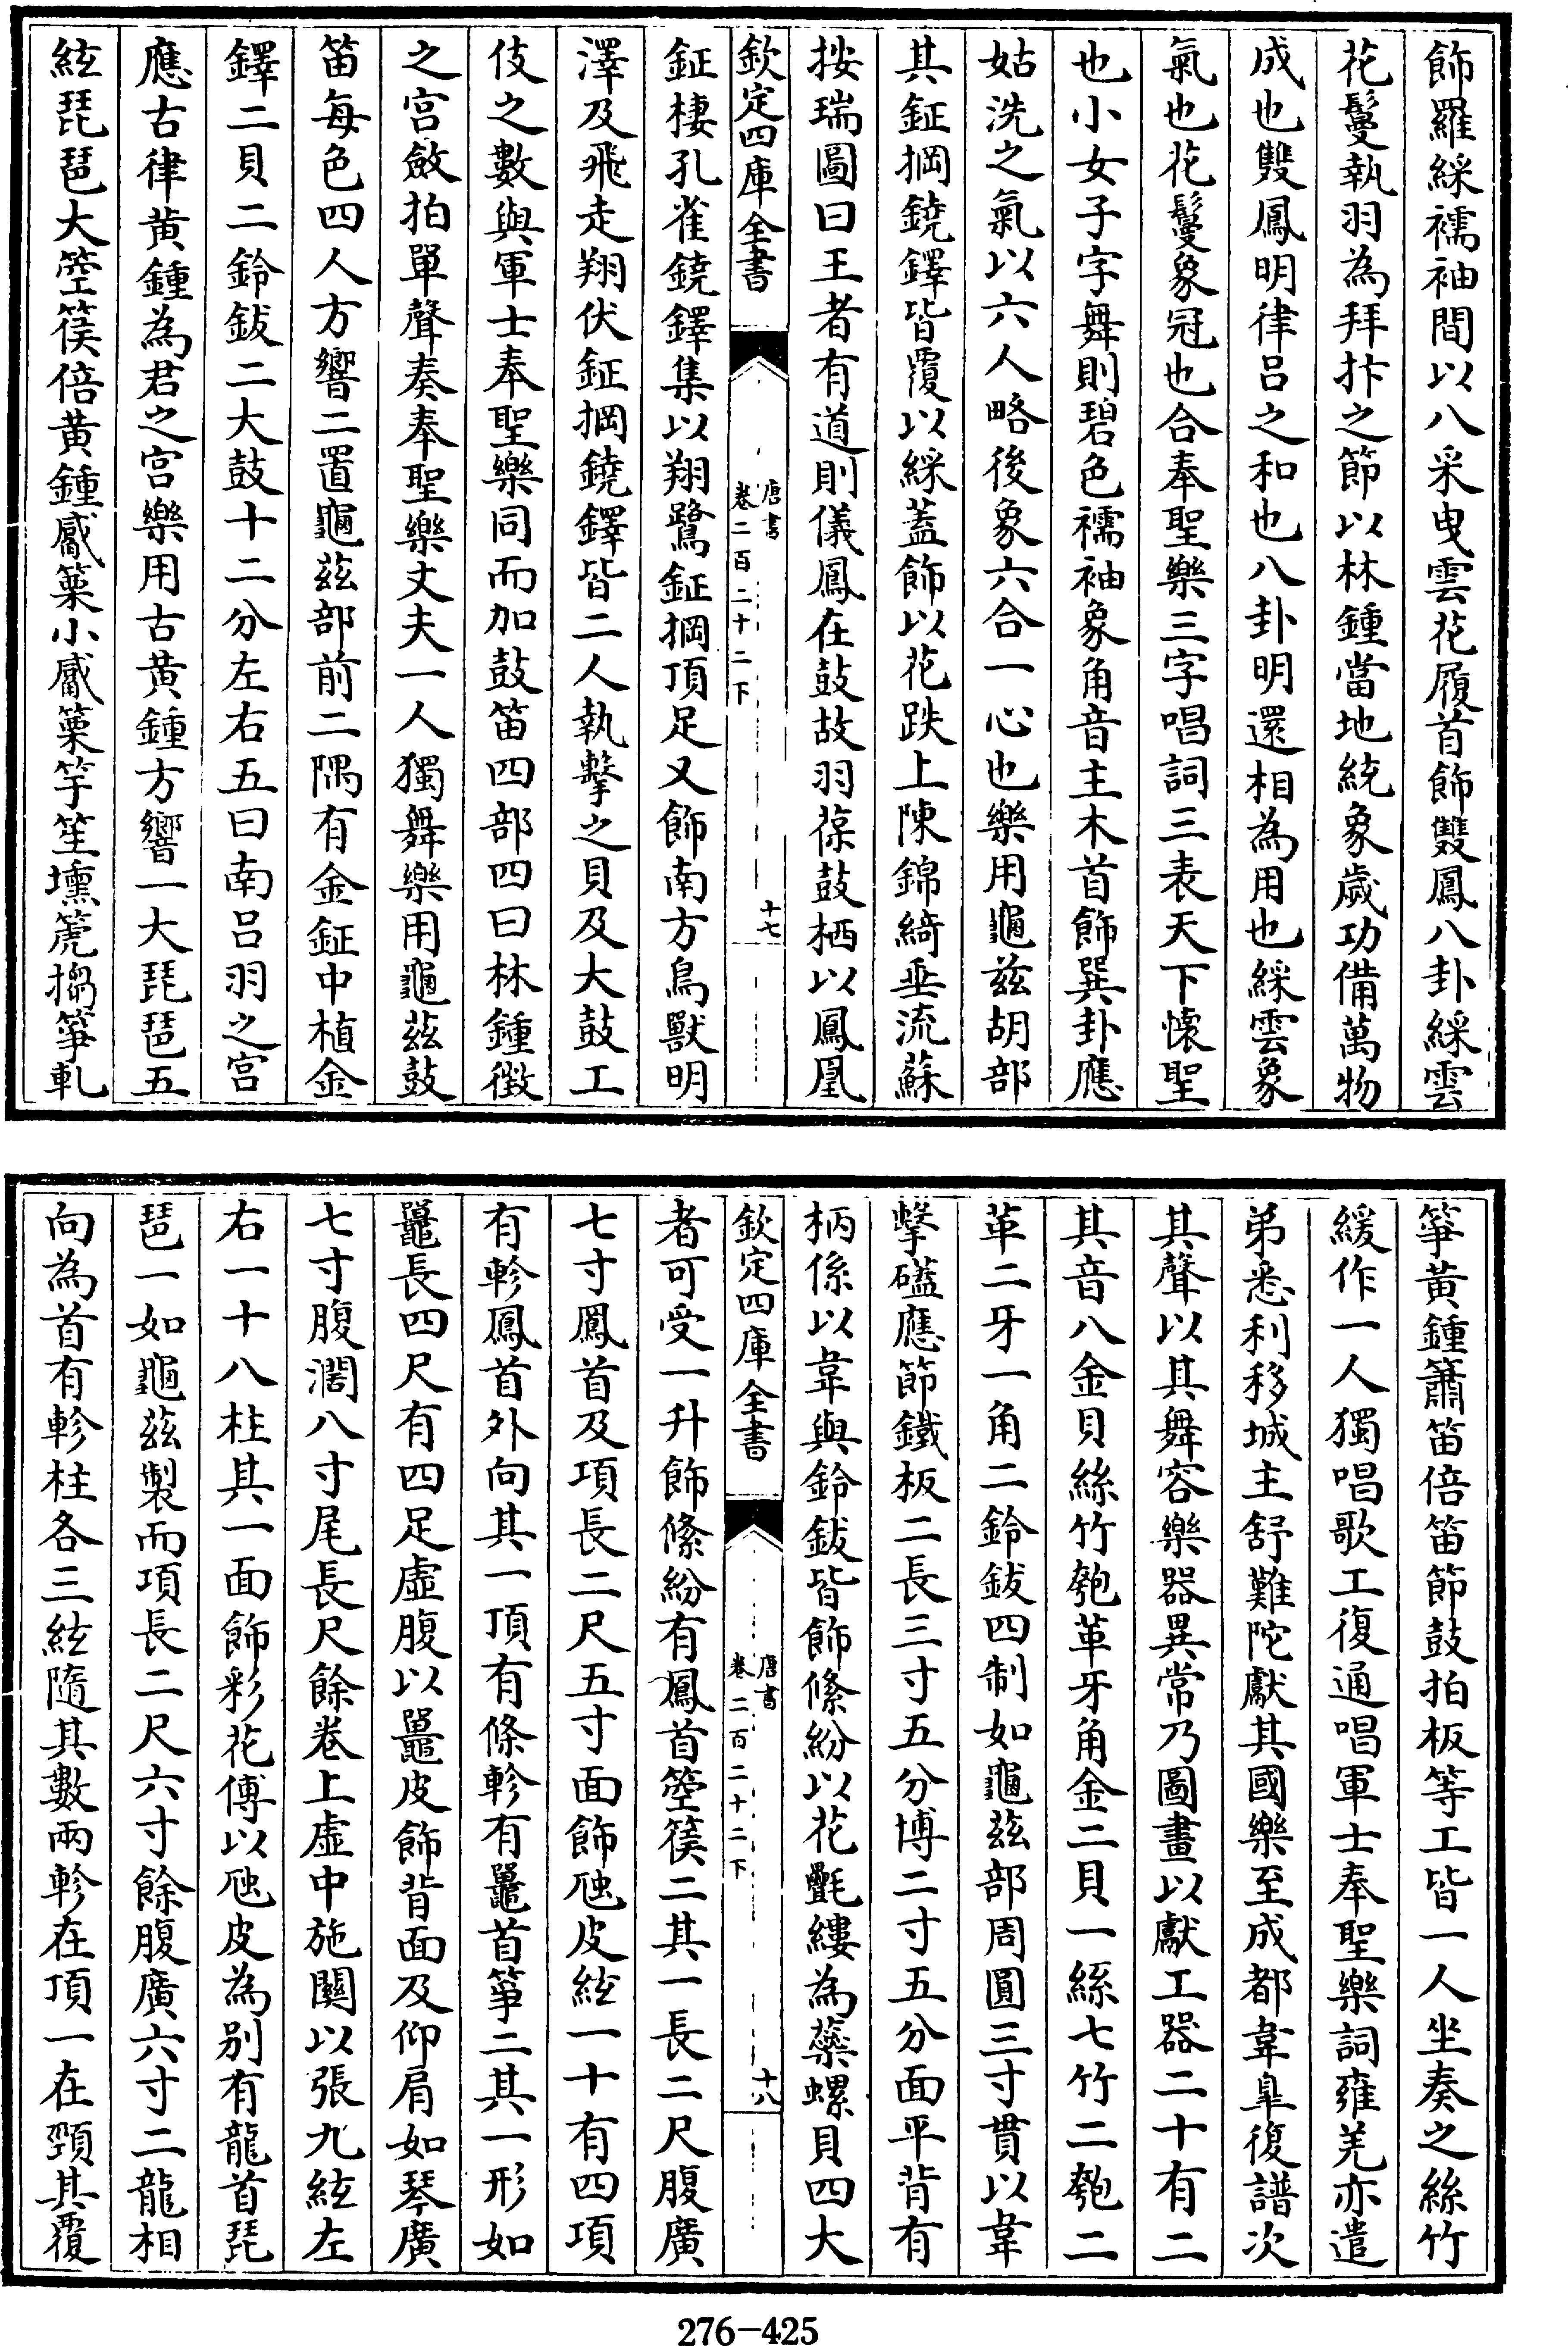 飾羅綵襦袖間以八采曳雲花履首飾雙鳳八卦綵雲
花鬘執羽為拜抃之節以林鍾當地統象歳功備萬物
成也雙鳳明律吕之和也八卦明還相為用也綵雲象
氣也花鬘象冠也合奉聖樂三字唱詞三表天下懷聖
也小女子字舞則碧色襦袖象角音主木首飾巽卦應
姑洗之氣以六人略後象六合一心也樂用龜兹胡部
其鉦掆鐃鐸皆覆以綵蓋飾以花趺上陳錦綺垂流蘇
按瑞圖曰王者有道則儀鳳在鼓故羽葆鼓栖以鳳凰
欽定四庫全書 唐書 卷二百二十二下 十七
鉦棲孔雀鐃鐸集以翔鷺鉦掆頂足又飾南方鳥獸明
澤及飛走翔伏鉦掆鐃鐸皆二人執擊之貝及大鼓工
伎之數與軍士奉聖樂同而加鼓笛四部四曰林鍾徴
之宫斂拍單聲奏奉聖樂丈夫一人獨舞樂用龜兹鼓
笛每色四人方響二置龜兹部前二隅有金鉦中植金
鐸二貝二鈴鈸二大鼓十二分左右五曰南吕羽之宫
應古律黄鍾為君之宫樂用古黄鍾方響一大琵琶五
絃琵琶大箜篌倍黄鍾觱篥小觱篥竽笙壎篪搊箏軋
箏黄鍾簫笛倍笛節鼓拍板等工皆一人坐奏之絲竹
緩作一人獨唱歌工復通唱軍士奉聖樂詞雍羌亦遣
弟悉利移城主舒難陀獻其國樂至成都韋臯復譜次
其聲以其舞容樂器異常乃圖畫以獻工器二十有二
其音八金貝絲竹匏革牙角金二貝一絲七竹二匏二
革二牙一角二鈴鈸四制如龜兹部周圓三寸貫以韋
擊磕應節鐵板二長三寸五分博二寸五分面平背有
柄係以韋與鈴鈸皆飾絛紛以花氎縷為蘂螺貝四大
欽定四庫全書 唐書 卷二百二十二下 十八
者可受一升飾絛紛有鳳首箜篌二其一長二尺腹廣
七寸鳳首及項長二尺五寸面飾虺皮絃一十有四項
有軫鳳首外向其一頂有條軫有鼉首箏二其一形如
鼉長四尺有四足虛腹以鼉皮飾背面及仰肩如琴廣
七寸腹濶八寸尾長尺餘卷上虛中施關以張九絃左
右一十八柱其一面飾彩花傅以虺皮為别有龍首琵
琶一如龜兹製而項長二尺六寸餘腹廣六寸二龍相
向為首有軫柱各三絃隨其數兩軫在頂一在頸其覆
276-425